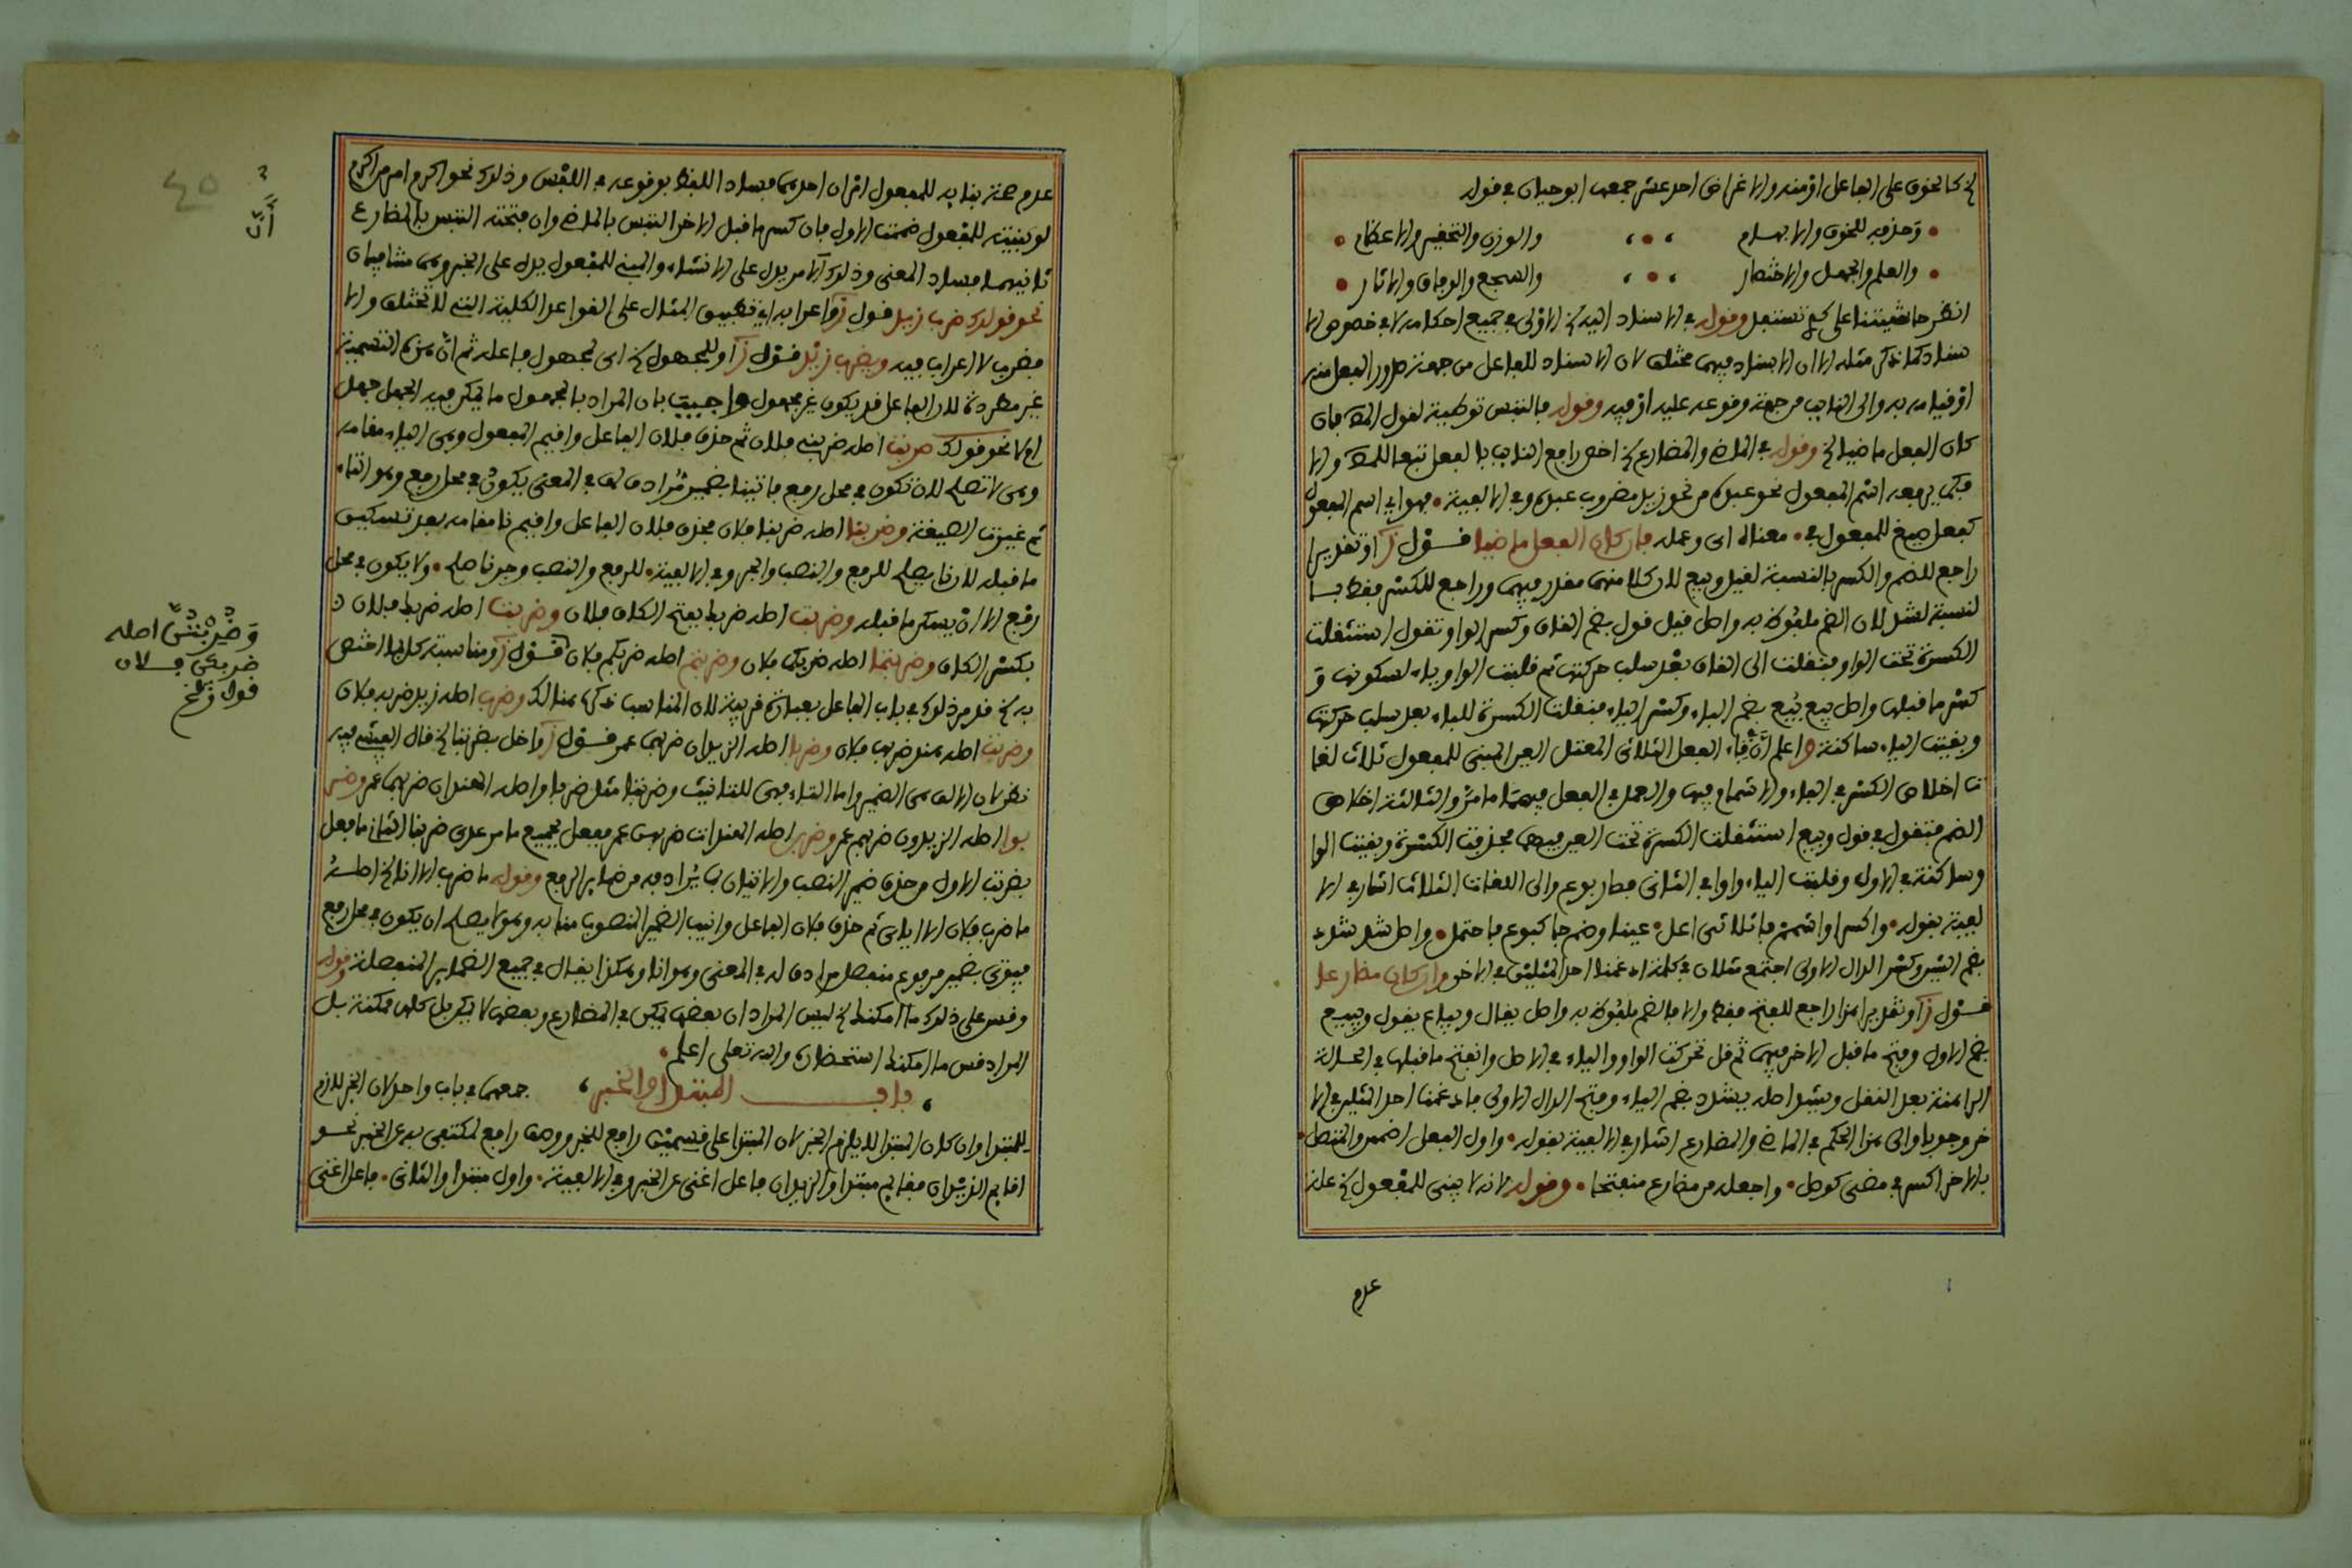 لخ كالخوف على الفاعل أو منه والاغراض احد عشر جمعها ابو حيان في قوله
وحذفه للخوف والابهام والوزن والتحقير والاعظام
والعلم والجهل والاختصار والسجع والوفاق والايثار
انظر حاشيتنا على وقوله في الاسناد اليه لخ الاولى في جميع احكامه لا في خصوص الا
سناد كما ذكر مثله الا ان الاسناد فيهما مختلف لان الاسناد للفاعل من جهة صدور الفعل منه
أو قيامه به والى النايب من جهة وقوعه عليه أو فيه وقوله فالتبس توطية لقول المص فان
كان الفعل ماضيا لخ وقوله في الماضي والمضارع لخ اخص رافع النايب بالفعل تبعا للمص والا
فكما يرفعه اسم المفعول نحو عبده من نحو زيد مضروب عبده وفي الالفية فهو اي اسم المفعول
كفعل صيغ للمفعول في معناه اى وعمله فان كان الفعل ماضيا قول ز أو تقديرا
راجع للضم والكسر بالنسبة لقيل وبيع لان كلا منهما مقدر فيهما وراجع للكسر فقط بالـ
لنسبة لشد لان الضم ملفوظ به واصل قيل قول بضم القاف وكسر الواو وتقول استثقلت
الكسرة تحت الواو فنقلت الى القاف بعد سلب حركتها ثم قلبت الواو ياء لسكونها و
كسر ما قبلها واصل بيع بيع بضم الباء وكسر الياء فنقلت الكسرة للباء بعد سلب حركتها
وبقيت الياء ساكنة واعلم أن فاء الفعل الثلاثي المعتل العين المبني للمفعول ثلاث لغا
ت اخلاص الكسر في الفاء والاشمام فيها والعمل في الفعل فيهما ما مر والثالثة اخلاص
الضم فتقول في قول وبيع استثقلت الكسرة تحت العين فيهما فحذفت الكسرة وبقيت الوا
و ساكنة في الاول وقلبت الياء واوا في الثاني فصار بوع والى اللغات الثلاث اشار في الا
لفية بقوله واكسر او اشمم فا ثلاثي اعل عينا وضم جا كبوع فاحتمل واصل شد شدد
بضم الشين وكسر الدال الاولى اجتمع مثلان في كلمة ادغمنا احد المثلين في الاخر وان كان مضارعا
قول ز أو تقديرا هذا راجع للفتح فقط والا فالضم ملفوظ به واصل يقال ويباع يقول ويبيع
بضم الاول وفتح ما قبل الاخر فيهما ثم قل تحركت الواو والياء في الاصل وانفتح ما قبلها في الحالة
الراهنة بعد النقل ويشد اصله يشدد بضم الياء وفتح الدال الاولى فادغمنا احد المثلين في الا
خر وجوبا والى هذا الحكم في الماضي والمضارع اشار في الالفية بقوله واول الفعل اضممن والمتصل
بالاخر اكسر في مضي كوصل واجعله من مضارع منفتحا وقوله لانه لا يبنى للمفعول لخ علة
عدم
عدم صحة بنايه للمفعول امران احدهما فساد اللفظ بوقوعه في اللبس وذلك نحو اكرم امر من اكرم
لو بنيته للمفعول ضممت الاول فان كسرت ما قبل الاخر التبس بالماضي وان فتحته التبس بالمضارع
ثانيهما فساد المعنى وذلك أن الامر يدل على الانشاء والمبني للمفعول يدل على الخبر وهما متنافيان
نحو قولك ضرب زيد قول ز واعرابه اي تطبيق المثال على القواعد الكلية التي لا تختلف والا
فضرب لا اعراب فيه ويضرب زيد قول ز او للمجهول لخ اى المجهول فاعله ثم أن هذه التسمية
غير مطردة لان الفاعل قد يكون غير مجهول واجيب بان المراد بالمجهول ما يمكن فيه الجهل جهل
ام لا نحو قولك ضربت اصله ضربني فلان ثم حذف فلان الفاعل واقيم المفعول وهي الياء مقامه
وهي لا تصلح لان تكون في محل رفع فاتينا بضمير مرادف لها في المعنى يكون في محل رفع وهو التاء
ثم غيرت الصيغة وضربنا اصله ضربنا فلان فحذف فلان الفاعل واقيم نا مقامه بعد تسكين
ما قبله لان نا يصلح للرفع والنصب والجر وفي الالفية للرفع والنصب وجر نا صلح ولا يكون في محل
رفع الا ان يسكن ما قبله وضربت اصله ضربك بفتح الكاف فلان وضربت اصله ضربك فلان
بكسر الكاف وضربتما اصله ضربكما فلان وضربتم اصله ضربكم فلان قول ز ومناسبة كل لما اختص
به لخ قد مر ذلك في باب الفاعل بعبارة قريبة لان المناسب ذكره هنالك وضرب اصله زيد ضربه فلان
وضربت اصله هند ضربها فلان وضربا اصله الزيدان ضربهما عمر قول ز واخل بضربتا لخ قال الفيشي فيه
نظر لان الالف هي الضمير واما التاء فهي للتانيث وضربتا مثل ضربا واصله الهندان ضربهما عمر وضر
بوا اصله الزيدون ضربهم عمر وضربن اصله الهندات ضربهن عمر ففعل بجميع ما مر عدى ضربنا الثاني ما فعل
بضربت الاول من حذف ضمير النصب والاتيان بما يرادفه من ضماير الرفع وقوله ما ضرب الا انا لخ اصله
ما ضرب فلان الا اياي ثم حذف فلان الفاعل وانيب الضمير المنصوب منابه وهو لا يصلح ان يكون في محل رفع
فيوتى بضمير مرفوع منفصل مرادف له في المعنى وهو انا وهكذا يقال في جميع الضماير المنفصلة وقوله
وقس على ذلك ما امكنك لخ ليس المراد ان بعضها يمكن في المضارع وبعضها لا يمكن بل كلها ممكنة بل
المراد قس ما امكنك استحضاره والله تعلى اعلم
باب المبتدا والخبر جمعهما في باب واحد لان الخبر لازم
للمبتدا وان كان المبتدا لا يلزم الخبر لان المبتدا على قسمين رافع للخبر ووصف رافع لمكتفى به عن الخبر نحو
اقايم الزيدان فقايم مبتدا والزيدان فاعل اغنى عن الخبر وفي الالفية واول مبتدا والثاني فاعل اغنى
أن
وضربتن اصله
ضربكن فلان
قول ز لخ
٤٥